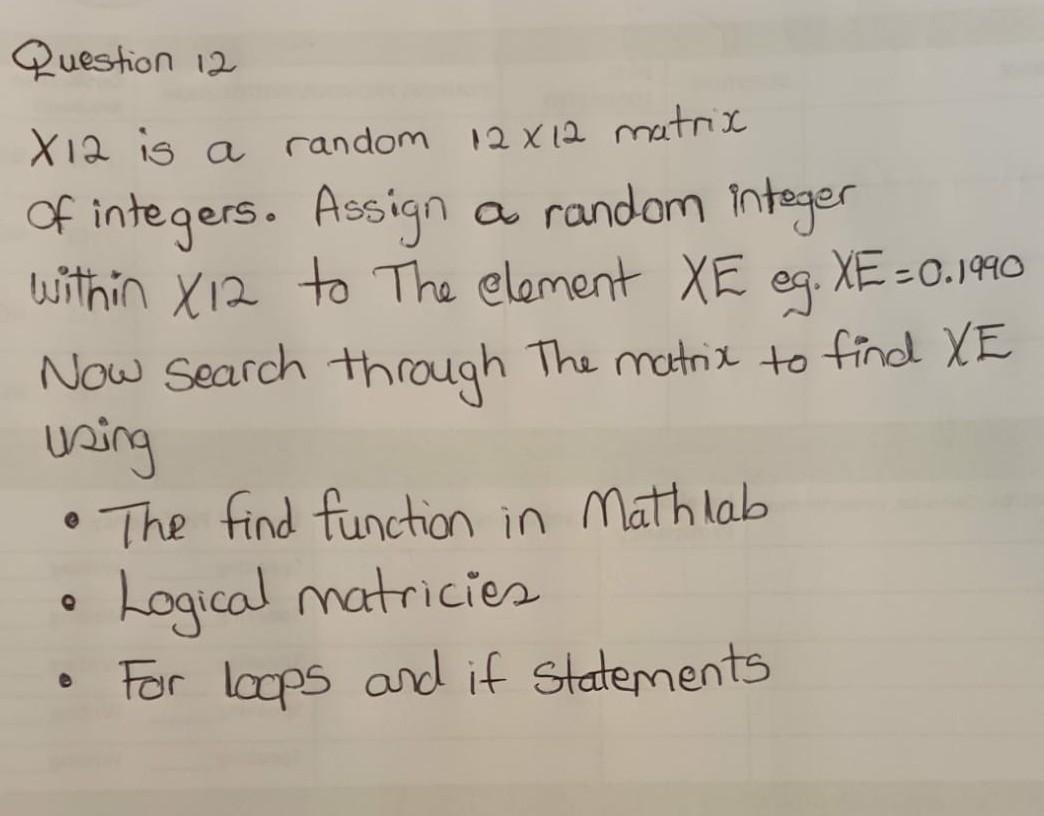 Question 12
X12 is a random 12 x 12 matrix
of integers. Assign a random integer
within X12 to The element XE eg. XE = 0.1990
Now search through The matrix to find XE
using
• The find function in Mathlab
• Logical matricies
• For loops and if statements